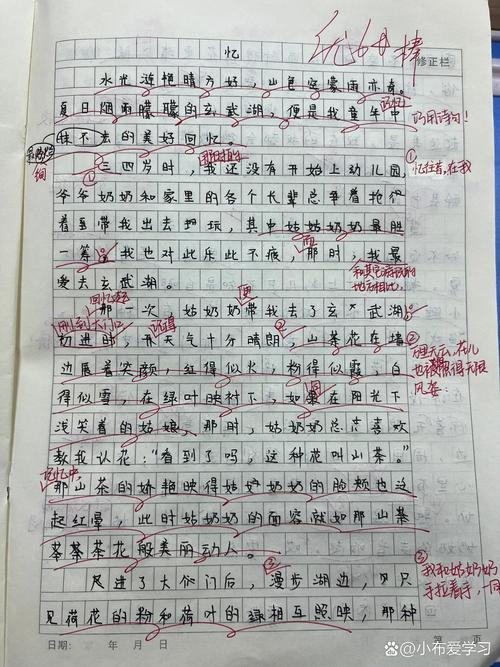 忆
修正栏
水光潋艳晴方好,山色空蒙雨亦奇。
夏日烟雨朦朦的玄武湖,便是我童年中
巧用诗句!
抹不去的美好回忆。
三四岁时,我还没有开始上幼儿园,
①
忆往昔,在我
爷爷奶奶和家里的各个长辈总争着抢
着要带我出去把玩,其中姑姑奶奶最胜
一筹。我也对此乐此不疲,那时,我最
爱去玄武湖。
和其它游玩的
地方相比,
回忆起
那一次,姑奶奶带我去了玄武湖。
刚到大门口
记得
初进时,天气十分晴朗。山茶花在墙
②
边展着笑颜,红得似火,粉得似霞,白
得似雪,在绿叶映衬下,如在阳光下
浅笑着的姑娘。那时,姑奶奶总喜欢
教我认花:“看到了吗,这种花叫山茶。”
记忆中,
那山茶的娇艳映得姑奶奶的脸颊也泛
起红晕,此时姑奶奶的面容就如那山茶
茶茶茶花般美丽动人。
③
我和姑奶奶
手拉着手,一同
进了大门后,漫步湖边,只
见荷花的粉和荷叶的绿相互照映,那种
日期: 年 月 日
第 页
小布爱学习